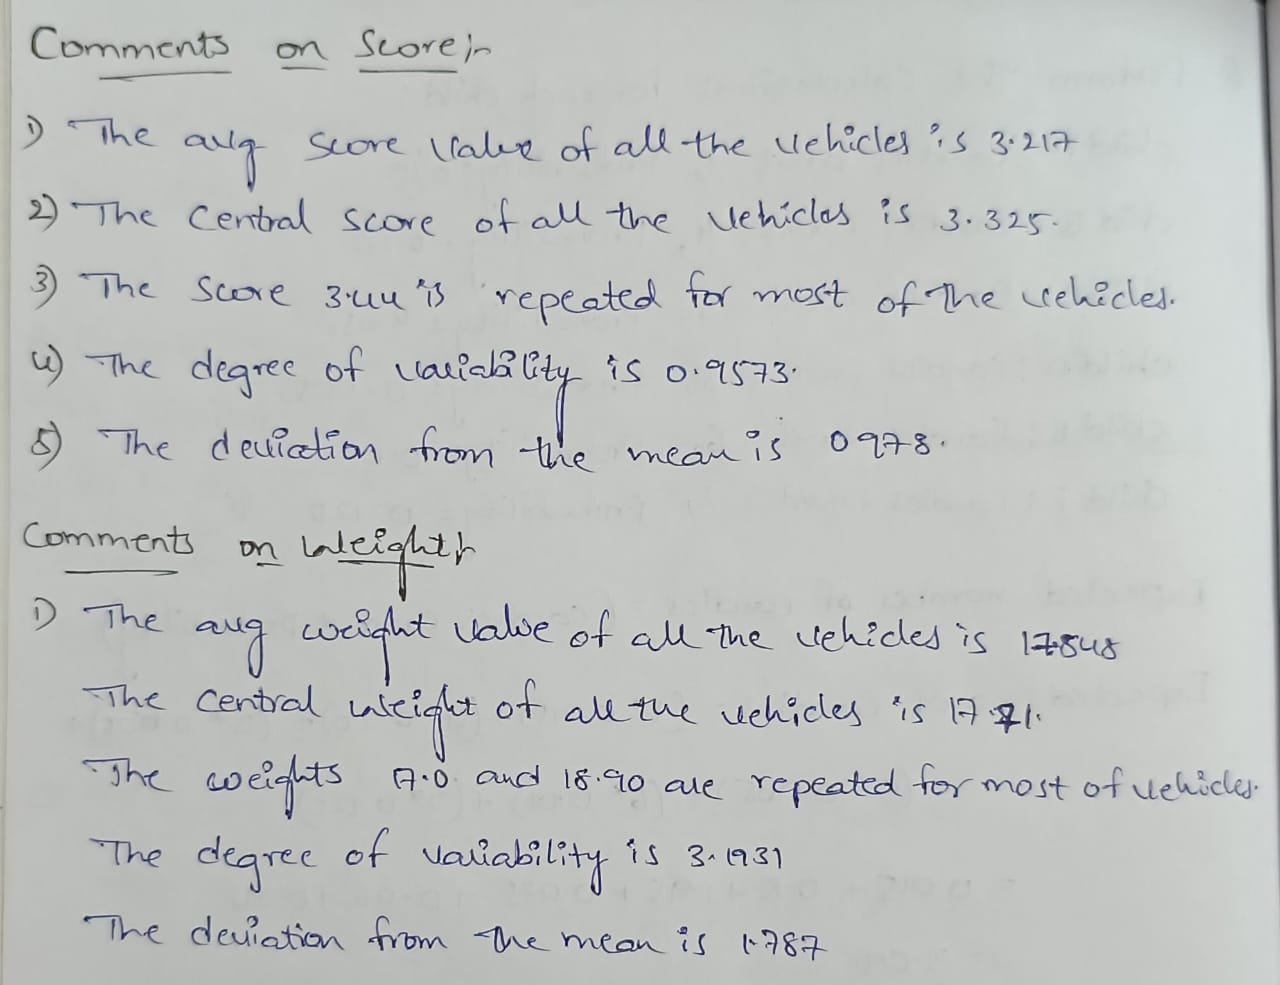 Comments on Score:-
1) The avg score value of all the vehicles is 3.217
2) The Central score of all the vehicles is 3.325.
3) The Score 3.44 is repeated for most of the vehicles.
4) The degree of variability is 0.9573.
5) The deviation from the mean is 0978.
Comments on Weight:-
1) The avg weight value of all the vehicles is 17.848
The Central weight of all the vehicles is 17.71.
The weights 17.0 and 18.90 are repeated for most of vehicles.
The degree of variability is 3.1931
The deviation from the mean is 1.787